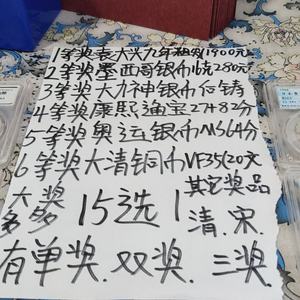 1等奖袁大头九年粗发1900元
2等奖墨西哥银币16克280元
3等奖大力神银币后铸
4等奖康熙通宝2件82分
5等奖奥运银币MS69分
6等奖大清铜币VF35120元
大奖多多
15选1
其它奖品
清.宋.
有单奖.双奖.三奖.